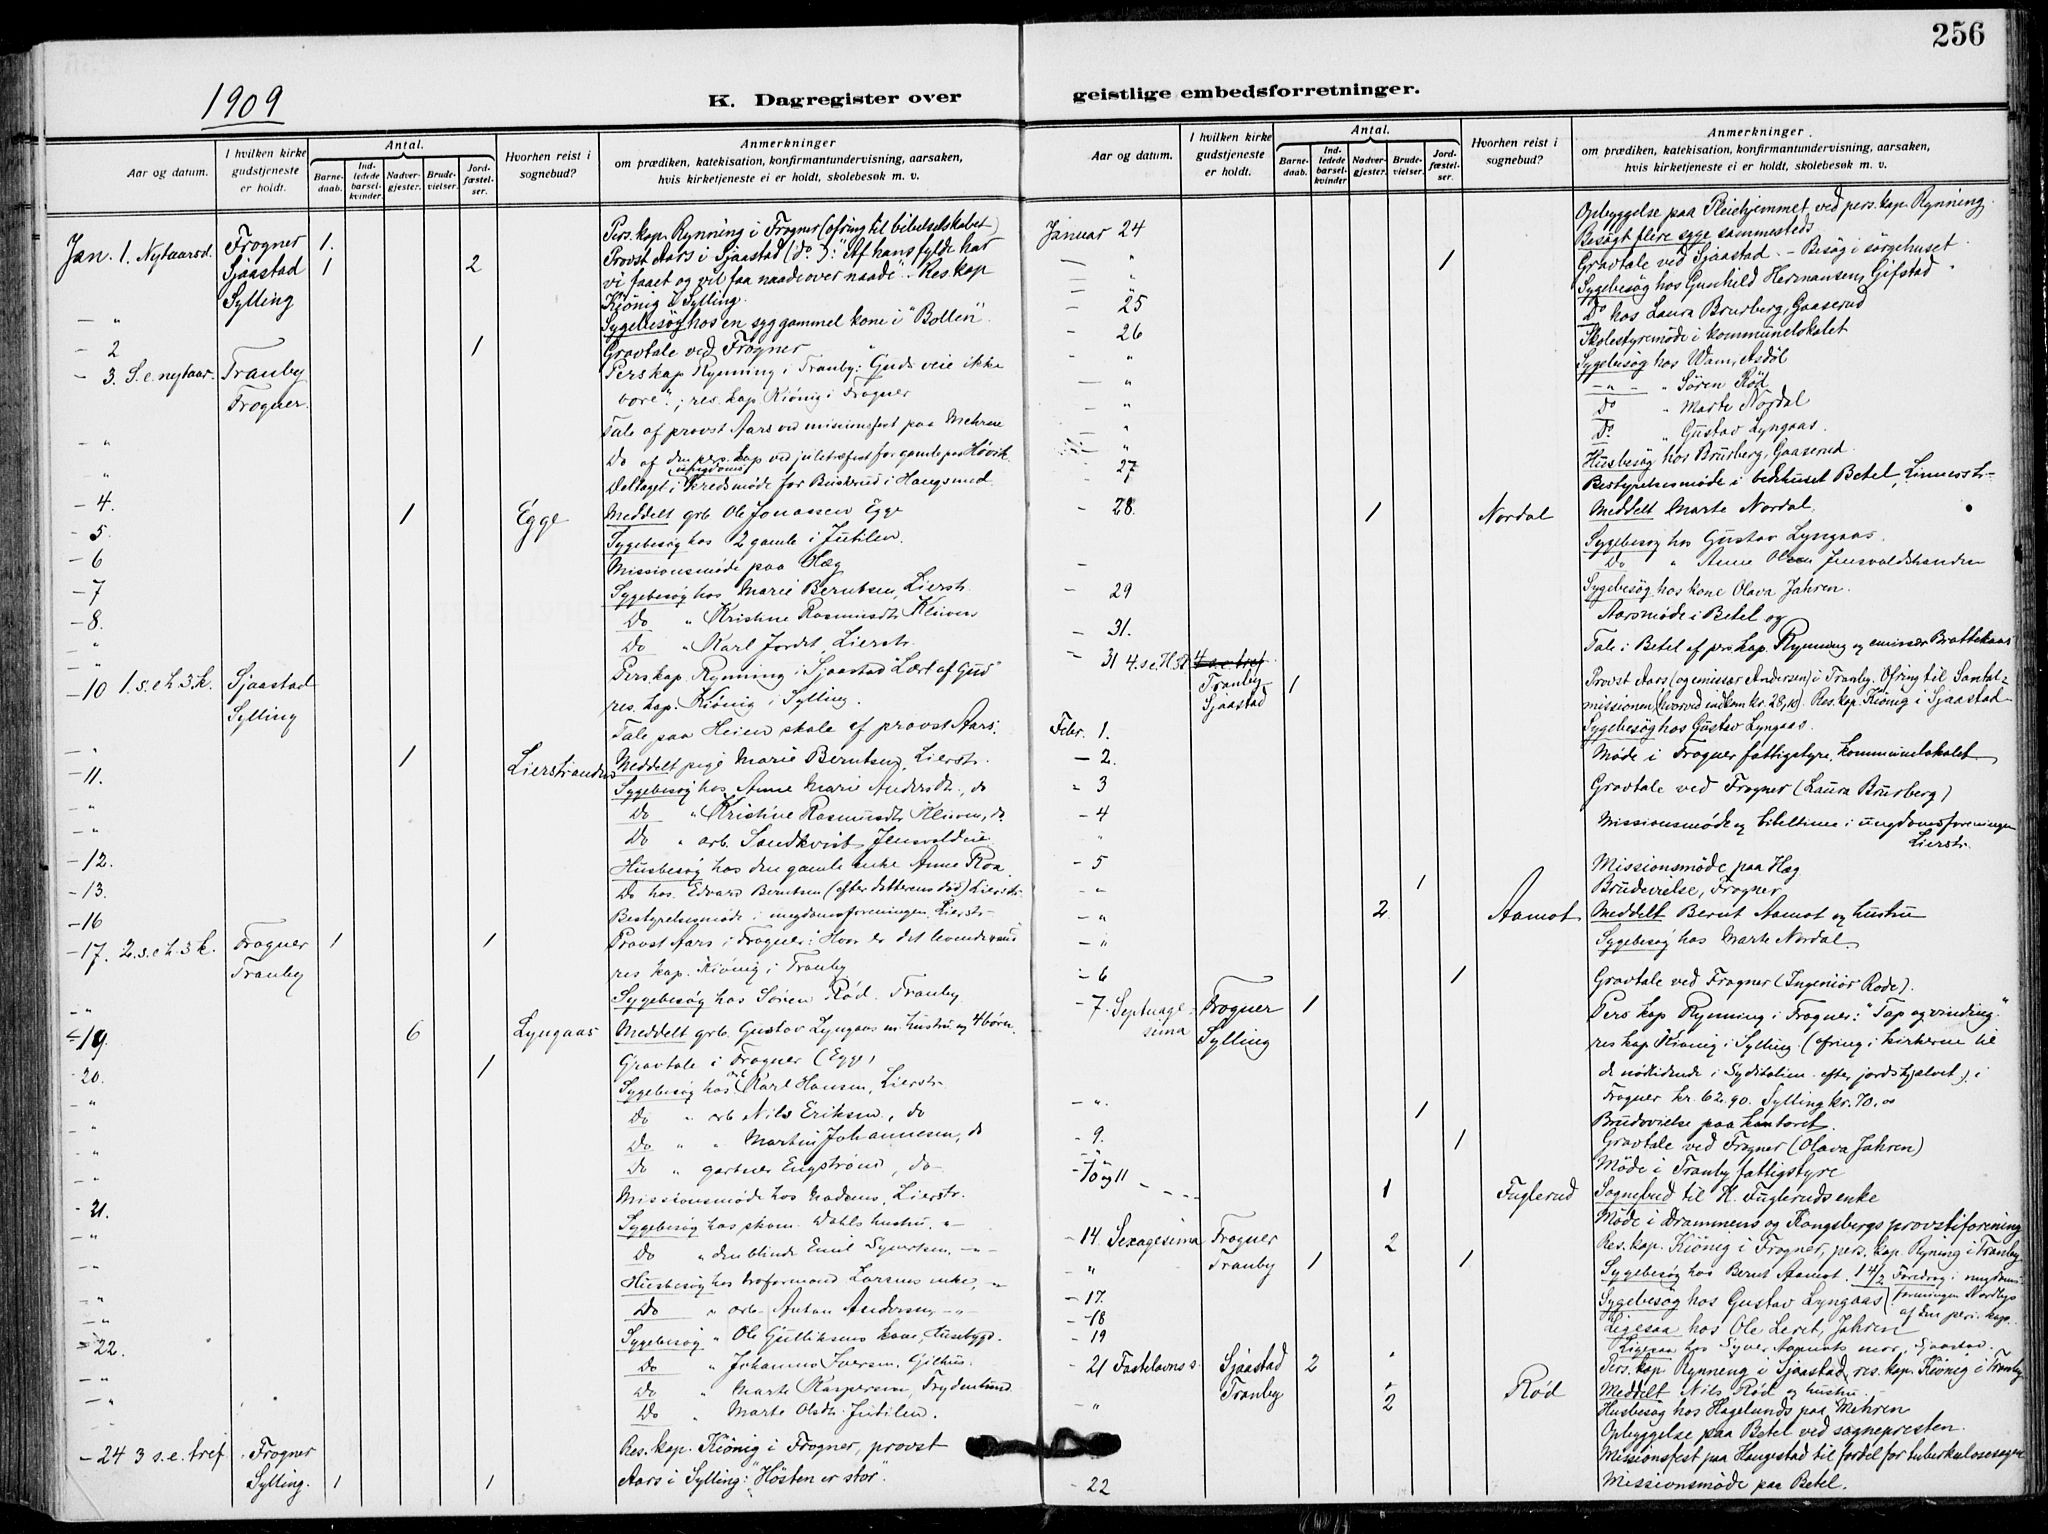 256
1909
K. Dagregister over
geistlige embedsforretninger.
Aar og datum.
I hvilken kirke gudstjeneste er holdt.
Antal.
Barnedaab.
Indledede barselkvinder.
Nadvergjester.
Brudevielser.
Jordfæstelser.
Hvorhen reist i sognebud?
Anmerkninger
om prædiken, katekisation, konfirmantundervisning, aarsaken,
hvis kirketjeneste ei er holdt, skolebesøk m. v.
Jan. 1. Nytaarsd. Frogner 1. Pers. kap. Rynning i Frogner (ofring til bibelselskabet)
Sjaastad 1 2 Provst Aars i Sjaastad (do): "Af hans fylde har
Sylling vi faaet og vil faa naade over naade". Res. kap
Kiönig i Sylling.
- " Sygebesøg hos en syg gammel kone i "Bollen".
- 2 1 Gravtale ved Frogner
- 3. S. e. nytaar. Tranby Pers kap Rynning i Tranby: Guds veie ikke
Frogner. vore"; res. kap Kiönig i Frogner
- " Tale af provst Aars ved missionsfest paa Mehren
- " Do af den pers. kap ved juletræfest for gamle paa Høvik
Deltaget i ungdoms kredsmøde for Buskerud i Haugsund
- 4. 1 Egge Meddelt grb. Ole Jonassen Egge
- 5 Sygebesøg hos 2 gamle i Jutilen.
- 6 Missionsmøde paa Hæg
- 7 Sygebesøg hos Marie Berntsen, Lierstr.
- 8. Do " Kristine Rasmusdtr Kliven
" Do " Karl Jordet, Lierstr.
- 10 1. s. e. h. 3. k. Sjaastad Pers. kap. Rynning i Sjaastad "Lært af Gud"
Sylling res. kap. Kiönig i Sylling.
- " Tale paa Heien skole af provst Aars.
- 11. 1 Lierstranden Meddelt pige Marie Berntsen, Lierstr.
- " Sygebesøg hos Anne Marie Andersdtr, do
- " Do " Kristine Rasmusdtr Kliven, do
Do " arb. Sandkvist
- 12. Husbesøg hos den gamle enke Anne Roa.
- 13. Do hos. Edvard Berntsen (efter datterens død) Lierstr.
- 16 Bestyrelsesmøde i ungdomsforeningen Lierstr.
- 17. 2. s. e. h. 3. k. Frogner 1 1 Provst Aars i Frogner: "Hvor er det levende vand"
Tranby res kap. Kiönig i Tranby
- " Sygebesøg hos Søren Rød. Tranby
- 19. 6 Lyngaas Meddelt grb. Gustav Lyngaas m hustru og 4 børn.
- 20. 1 Gravtale i Frogner (Egge)
- " Sygebesøg hos arb Karl Hansen, Lierstr.
- " Do " arb Nils Eriksen, do
- " Do " " Martin Johannesen, do
- " Do " gartner Engstrøm, do-
- 21. Missionsmøde hos Lierstr.
- " Sygebesøg hos skom. Dahls hustru, "-
- " Do " den blinde Emil Syvertsen, -"-
- " Husbesøg hos Larsens enke, "
- " Do " arb. Anton Andersen, -"-
- 22. Sygebesøg " Ole Gulliksens kone, Husebygd.
- " Do " Johannes Iversen, Gilhus.
- " Do " Marte Kaspersen, Frydenlund
- " Do " Marte Olsdtr. Jutilen.
- 24 3 s. e. tref. Frogner Res. kap. Kiönig i Frogner, provst
Sylling. 1 1 Aars i Sylling: "Høsten er stor".
Aar og datum.
I hvilken kirke gudstjeneste er holdt.
Antal.
Barnedaab.
Indledede barselkvinder
Nadvergjester.
Brudevielser.
Jordfæstelser.
Hvorhen reist i sognebud?
Anmerkninger.
om prædiken, katekisation, konfirmantundervisning, aarsaken,
hvis kirketjeneste ei er holdt, skolebesøk m. v.
Januar 24 Opbyggelse paa Pleiehjemmet ved pers. kap. Rynning.
Besøgt flere syge sammesteds
- " 1 Gravtale ved Sjaastad. - Besøg i sørgehuset
- " Sygebesøg hos Gunhild Hermansen, Gifstad
- 25 Do hos Laura Brusberg, Gaaserud
- 26 Skolestyremøde i kommunelokalet
- " Sygebesøg hos Wam, Asdöl
- " -"- " Søren Rød
- " Do " Marte Nordal
- " Do. " Gustav Lyngaas.
- " Husbesøg hos Brusberg, Gaaserud.
- 27 Bestyrelsesmøde i bedehuset Betel, Linnesstr-
- 28. 1 Nordal Meddelt Marte Nordal.
Sygebesøg hos Gustav Lyngaas.
- Do " Anne Olsen
- 29 Sygebesøg hos kone Olava Jahren.
- 31. Aarsmøde i Betel og
Tale i Betel af pers kap. Rynning og emissær Brattekaas
- 31 4. s. e. H. 3 k 4 s. e. tref Tranby 1 Provst Aars (og emissær Andersen) i Tranby. Ofring til Santal-
Sjaastad missionen (hvorved indkom kr. 28,10). Res. kap. Kiönig i Sjaastad
Febr. 1. Sygebesøg hos Gustav Lyngaas.
- 2. Møde i Frogner fattigstyre, kommunelokalet
- 3 Gravtale ved Frogner (Laura Brusberg)
- 4 Missionsmøde og bibeltime i ungdomsforeningen
Lierstr.
- 5 Missionsmøde paa Hæg
- " 1 Brudevielse, Frogner
- " 2 Aamot Meddelt Bernt Aamot og hustru
- " Sygebesøg hos Marte Nordal.
- 6 1 Gravtale ved Frogner (Ingeniør Rode).
- 7. Septuagesima Frogner 1 Pers kap Rynning i Frogner: "Tap og vinding"
Sylling res kap Kiönig i Sylling. (ofring i kirkerne til
de nødlidende i Syditalien efter jordskjælvet), i
Frogner kr. 62.90. Sylling kr. 70.00
- ". 1 Brudevielse paa kontoret.
- 9. 1 Gravtale ved Frogner (Olava Jahren)
" Møde i Tranby fattigstyre
- 10 og 11 1 Fuglerud Sognebud til K. Fugleruds enke
Møde i Drammens og Kongsbergs provstiforening
- 14. Sexagesima Frogner 2 Res. kap. Kiönig i Frogner, pers. kap. Rynning i Tranby
- " Tranby 1 1 Sygebesøg hos Bernt Aamot. 14/2 Foredrag i ungdoms-
- 17. Sygebesøg hos Gustav Lyngaas (foreningen Nordbys
- 18 Ligesaa hos Ole Leret, Jahren af den pers. kap.
- 19 Ligesaa hos Syver Aamots mor, Sjaastad
- 21 Fastelavns s. Sjaastad 2 Pers. kap. Rynning i Sjaastad, res. kap. Kiönig i Tranby
Tranby 2 Rød Meddelt Nils Rød og hustru.
- " Husbesøg hos Hagelunds paa Mehren
Opbyggelse paa Betel ved sognepresten.
Missionsfest paa Haugestad til fordel for tuberkulosesagen
- 22 Missionsmøde paa Betel.